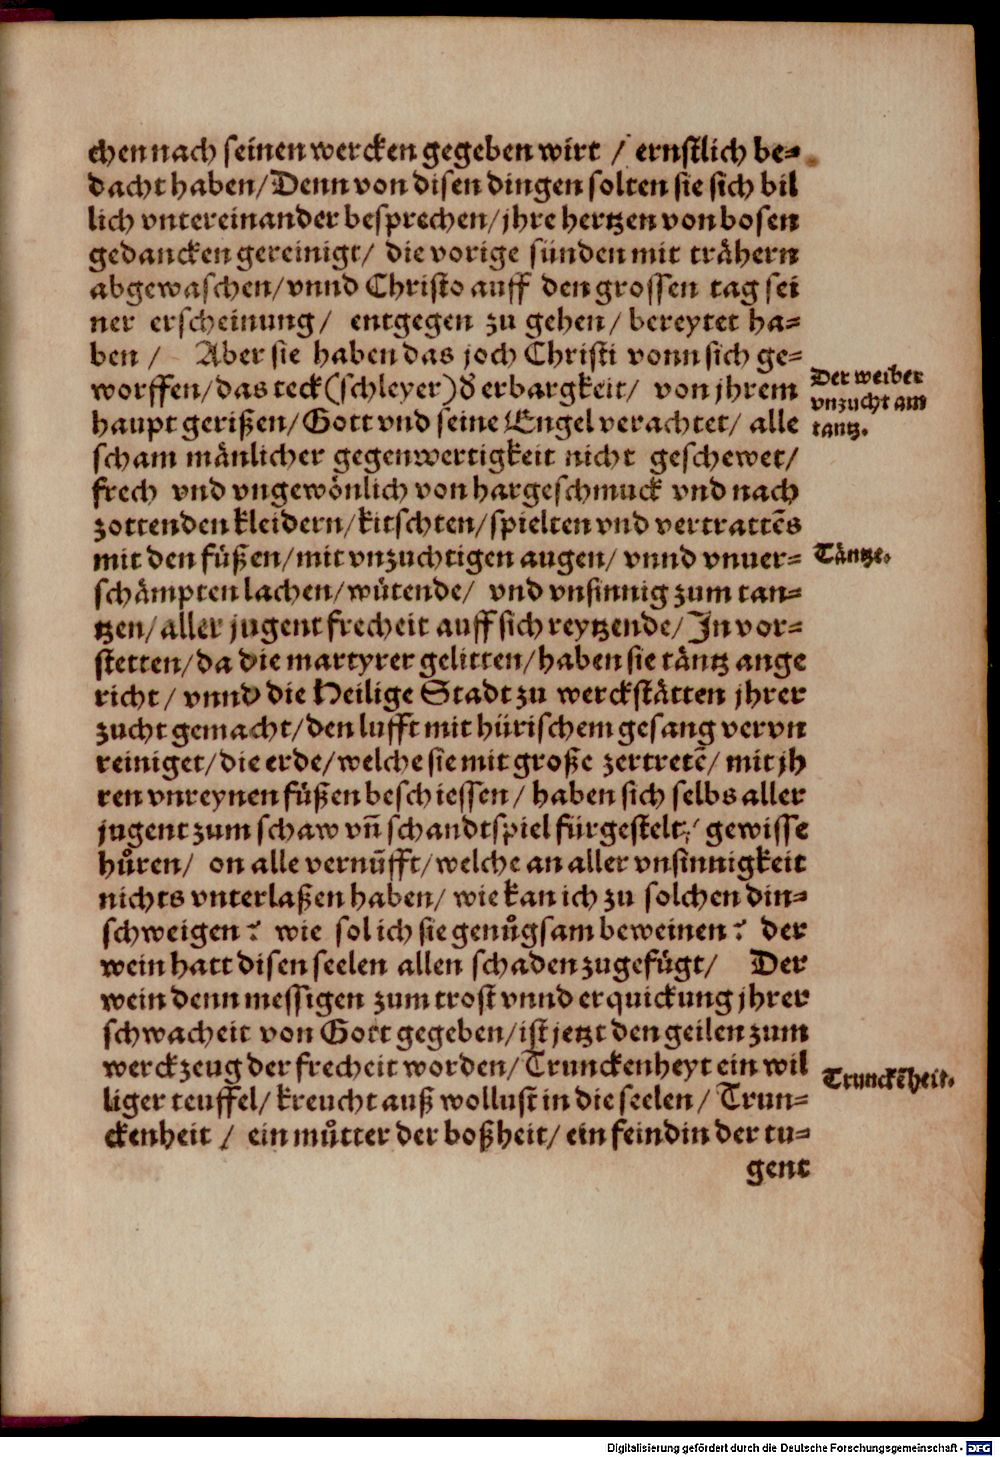 chen nach seinen wercken gegeben wirt / ernstlich be=
dacht haben/Denn von disen dingen solten sie sich bil
lich vntereinander besprechen/jhre hertzen von bosen
gedancken gereinigt/ die vorige sünden mit trähern
abgewaschen/vnnd Christo auff den grossen tag sei
ner erscheinung/ entgegen zu gehen/bereytet ha=
ben / Aber sie haben das joch Christi vonn sich ge=
worffen/das teck(schleyer)d̕ erbargkeit/ von jhrem
haupt gerißen/Gott vnd seine Engel verachtet/ alle
scham mänlicher gegenwertigkeit nicht geschewet/
frech vnd vngewönlich von hargeschmuck vnd nach
zottenden kleidern/kitschten/spielten vnd vertrattēs
mit den füßen/mit vnzuchtigen augen/ vnnd vnuer=
schämpten lachen/wütende/ vnd vnsinnig zum tan=
tzen/aller jugent frecheit auff sich reytzende/In vor=
stetten/da die martyrer gelitten/haben sie täntz ange
richt/ vnnd die Heilige Stadt zu werckstätten jhrer
zucht gemacht/den lufft mit hürischem gesang vervn
reiniget/die erde/welche sie mit große zertretē/ mit jh
ren vnreynen füßen beschiessen/ haben sich selbs aller
jugent zum schaw vn̄ schandtspiel fürgestelt/ gewisse
hůren/ on alle vernūfft/welche an aller vnsinnigkeit
nichts vnterlaßen haben/ wie kan ich zu solchen din=
schweigen? wie sol ich sie genůgsam beweinen? der
wein hatt disen seelen allen schaden zugefügt/ Der
wein denn messigen zum trost vnnd erquickung jhrer
schwacheit von Gott gegeben/ist jetzt den geilen zum
werckzeug der frecheit worden/Trunckenheyt ein wil
liger teuffel/kreucht auß wollust in die seelen/ Trun=
ckenheit / ein můtter der boßheit/ein feindin der tu=
gent
Der weiber
vnzucht am
tantz.
Täntze.
Trunckēheit.
Digitalisierung gefördert durch die Deutsche Forschungsgemeinschaft - DFG